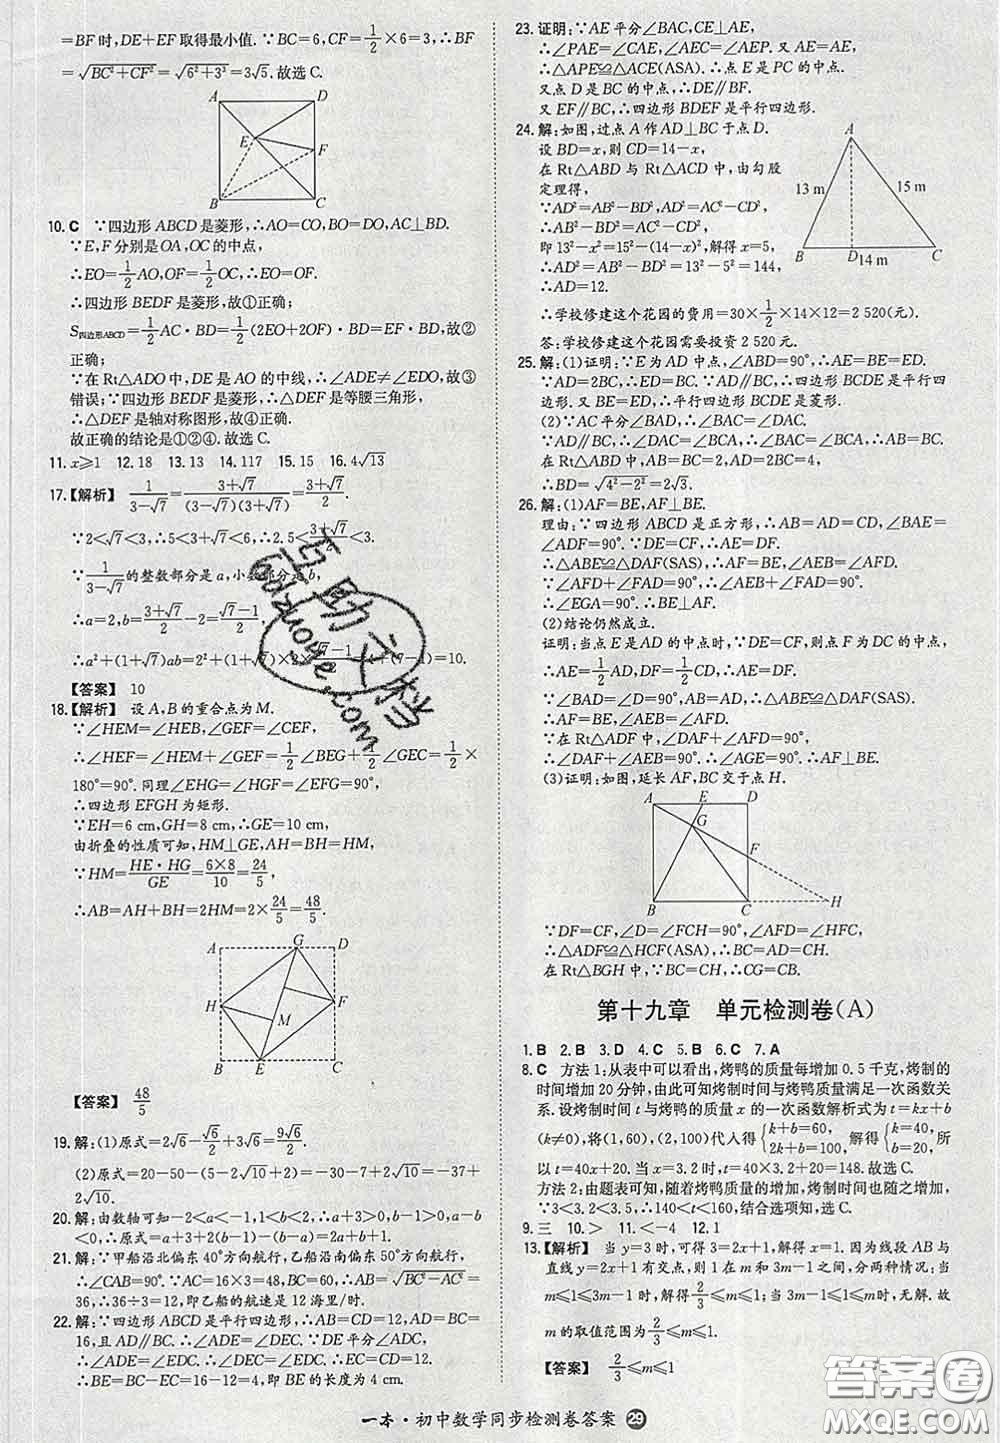 =BF时,DE+EF取得最小值.∵BC=6,CF=1/2×6=3,∴BF
=√(BC²+CF²)=√(6²+3³)=3√5.故选C.
A
D
E
F
B
C
10. C ∵四边形ABCD是菱形,∴AO=CO,BO=DO,AC⊥BD.
∵E,F分别是OA,OC的中点,
∴EO=1/2AO,OF=1/2OC,∴EO=FO.
∴四边形BEDF是菱形,故①正确;
S四边形ABCD=1/2AC·BD=1/2(2EO+2OF)·BD=EF·BD,故②
正确;
∵在Rt△ADO中,DE是AO的中线,∴∠ADE≠∠EDO,故③
错误;∵四边形BEDF是菱形,∴△DEF是等腰三角形,
∴△DEF是轴对称图形,故④正确.
故正确的结论是①②④.故选C.
11. x≥1 12. 18 13. 13 14. 117 15. 15 16. 4√13
17.【解析】 1/(3-√7)=(3+√7)/((3-√7)(3+√7))=(3+√7)/2.
∵2<√7<3,∴5<3+√7<6,∴2.5<(3+√7)/2<3.
∵1/(3-√7)的整数部分是a,小数部分是b,
∴a=2,b=(3+√7)/2-2=(√7-1)/2.
∴a²+(1+√7)ab=2²+(1+√7)×2×(√7-1)/2=4+(7-1)=10.
【答案】 10
18.【解析】 设A,B的重合点为M.
∵∠HEM=∠HEB,∠GEF=∠CEF,
∴∠HEF=∠HEM+∠GEF=1/2∠BEG+1/2∠GEC=1/2×
180°=90°.同理∠EHG=∠HGF=∠EFG=90°,
∴四边形EFGH为矩形.
∵EH=6 cm,GH=8 cm,∴GE=10 cm,
由折叠的性质可知,HM⊥GE,AH=BH=HM,
∵HM=HE·HG/GE=6×8/10=24/5,
∴AB=AH+BH=2HM=2×24/5=48/5.
A
G
D
H
F
M
B
E
C
【答案】 48/5
19.解:(1)原式=2√6-√6/2+3√6=9√6/2.
(2)原式=20-50-(5-2√10+2)=-30-7+2√10=-37+
2√10.
20.解:由数轴可知-2<a<-1,1<b<2,∴a+3>0,b-1>0,a-b
<0,∴原式=a+3-2(b-1)-(b-a)=2a-3b+5.
21.解:∵甲船沿北偏东40°方向航行,乙船沿南偏东50°方向航行,
∴∠CAB=90°.∵AC=16×3=48,BC=60,∴AB=√(BC²-AC²)=
36,∴36÷3=12,即乙船的航速是12海里/时.
22.解:∵四边形ABCD是平行四边形,∴AB=CD=12,AD=BC=
16,且AD∥BC.∴∠ADE=∠DEC.∵DE平分∠ADC,
∴∠ADE=∠EDC.∴∠DEC=∠EDC.∴CE=CD=12.
∴BE=BC-EC=16-12=4,即BE的长度为4 cm.
23.证明:∵AE平分∠BAC,CE⊥AE,
∴∠PAE=∠CAE,∠AEC=∠AEP.又AE=AE,
∴△APE≌△ACE(ASA).∴点E是PC的中点.
又点D是BC的中点,∴DE∥BF.
又EF∥BC,∴四边形BDEF是平行四边形.
24.解:如图,过点A作AD⊥BC于点D.
设BD=x,则CD=14-x,
在Rt△ABD与Rt△ACD中,由勾股
定理得,
∵AD²=AB²-BD²,AD²=AC²-CD²,
∴AB²-BD²=AC²-CD²,
即13²-x²=15²-(14-x)²,解得x=5,
∴AD²=AB²-BD²=13²-5²=144,
∴AD=12.
A
13 m
15 m
B
D
14 m
C
∴学校修建这个花园的费用=30×1/2×14×12=2 520(元).
答:学校修建这个花园需要投资2 520元.
25.解:(1)证明:∵E为AD中点,∠ABD=90°,∴AE=BE=ED.
∵AD=2BC,∴ED=BC.∵AD∥BC,∴四边形BCDE是平行四
边形.又BE=ED,∴平行四边形BCDE是菱形.
(2)∵AC平分∠BAD,∴∠BAC=∠DAC.
∵AD∥BC,∴∠DAC=∠BCA,∴∠BAC=∠BCA,∴AB=BC.
在Rt△ABD中,∵AB=BC=2,AD=2BC=4,
∴BD=√(4²-2²)=2√3.
26.解:(1)AF=BE,AF⊥BE.
理由:∵四边形ABCD是正方形,∴AB=AD=CD,∠BAE=
∠ADF=90°.∵DE=CF,∴AE=DF.
∴△ABE≌△DAF(SAS),∴AF=BE,∠AEB=∠AFD.
∵∠AFD+∠FAD=90°,∴∠AEB+∠FAD=90°,
∴∠EGA=90°.∴BE⊥AF.
(2)结论仍然成立.
证明:当点E是AD的中点时,∵DE=CF,则点F为DC的中点,
∴AE=1/2AD,DF=1/2CD,∴AE=DF.
∵∠BAD=∠D=90°,AB=AD,∴△ABE≌△DAF(SAS).
∴AF=BE,∠AEB=∠AFD.
∵在Rt△ADF中,∠DAF+∠AFD=90°,
∴∠AEB+∠DAF=90°,∴AF⊥BE.
(3)证明:如图,延长AF,BC交于点H.
A
E
D
G
F
B
C
H
∵DF=CF,∠D=∠FCH=90°,∠AFD=∠HFC,
∴△ADF≌△HCF(ASA),∴BC=AD=CH.
在Rt△BGH中,∵BC=CH,∴CG=CB.
第十九章 单元检测卷(A)
1. B 2. B 3. D 4. C 5. B 6. C 7. A
8. C 方法1:从表中可以看出,烤鸭的质量每增加0.5千克,烤制的
时间增加20分钟,由此可知烤制时间与烤鸭质量满足一次函数关
系.设烤制时间t与烤鸭的质量x的一次函数解析式为t=kx+b
(k≠0),将(1,60),(2,100)代人得{k+b=60,2k+b=100,解得{k=40,b=20,所
以t=40x+20.当x=3.2时,t=40×3.2+20=148.故选C.
方法2:由题表可知,随着烤鸭的质量增加,烤制时间也随之增加,
∵3<3.2<3.5,∴140<t<160,结合选项知,选C.
9. 三 10. > 11. <-4 12. 1
13.【解析】 当y=3时,可得3=2x+1,解得x=1.因为线段AB与
直线y=2x+1有交点,m≤1或3m-1≤1,分两种情况:当
m≤1≤3m-1时,解得2/3≤m≤1;当3m-1≤1≤m时,无解.故
m的取值范围为2/3≤m≤1.
【答案】 2/3≤m≤1
一本·初中数学同步检测卷答案 29
互助文档
60zuoye.com
答案圈
MXQE.COM